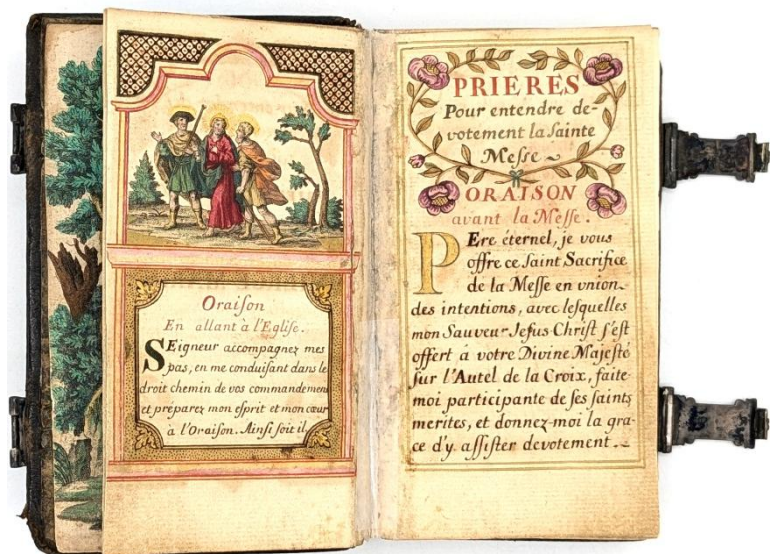 Oraiſon
En allant à l'Egliſe.
SEigneur accompagnez mes
pas, en me conduiſant dans le
droit chemin de vos commandemens
et préparez mon eſprit et mon cœur
à l'Oraiſon. Ainſi ſoit il.
PRIERES
Pour entendre de-
votement la ſainte
Meſſe ~
ORAISON
avant la Meſſe.
PEre éternel, je vous
offre ce ſaint Sacrifice
de la Meſſe en union
des intentions, avec leſquelles
mon Sauveur Jeſus Chriſt ſ'eſt
offert à votre Divine Majeſté
ſur l'Autel de la Croix, faite-
moi participante de ſes ſaints
merites, et donnez-moi la gra-
ce d'y aſſiſter devotement.~